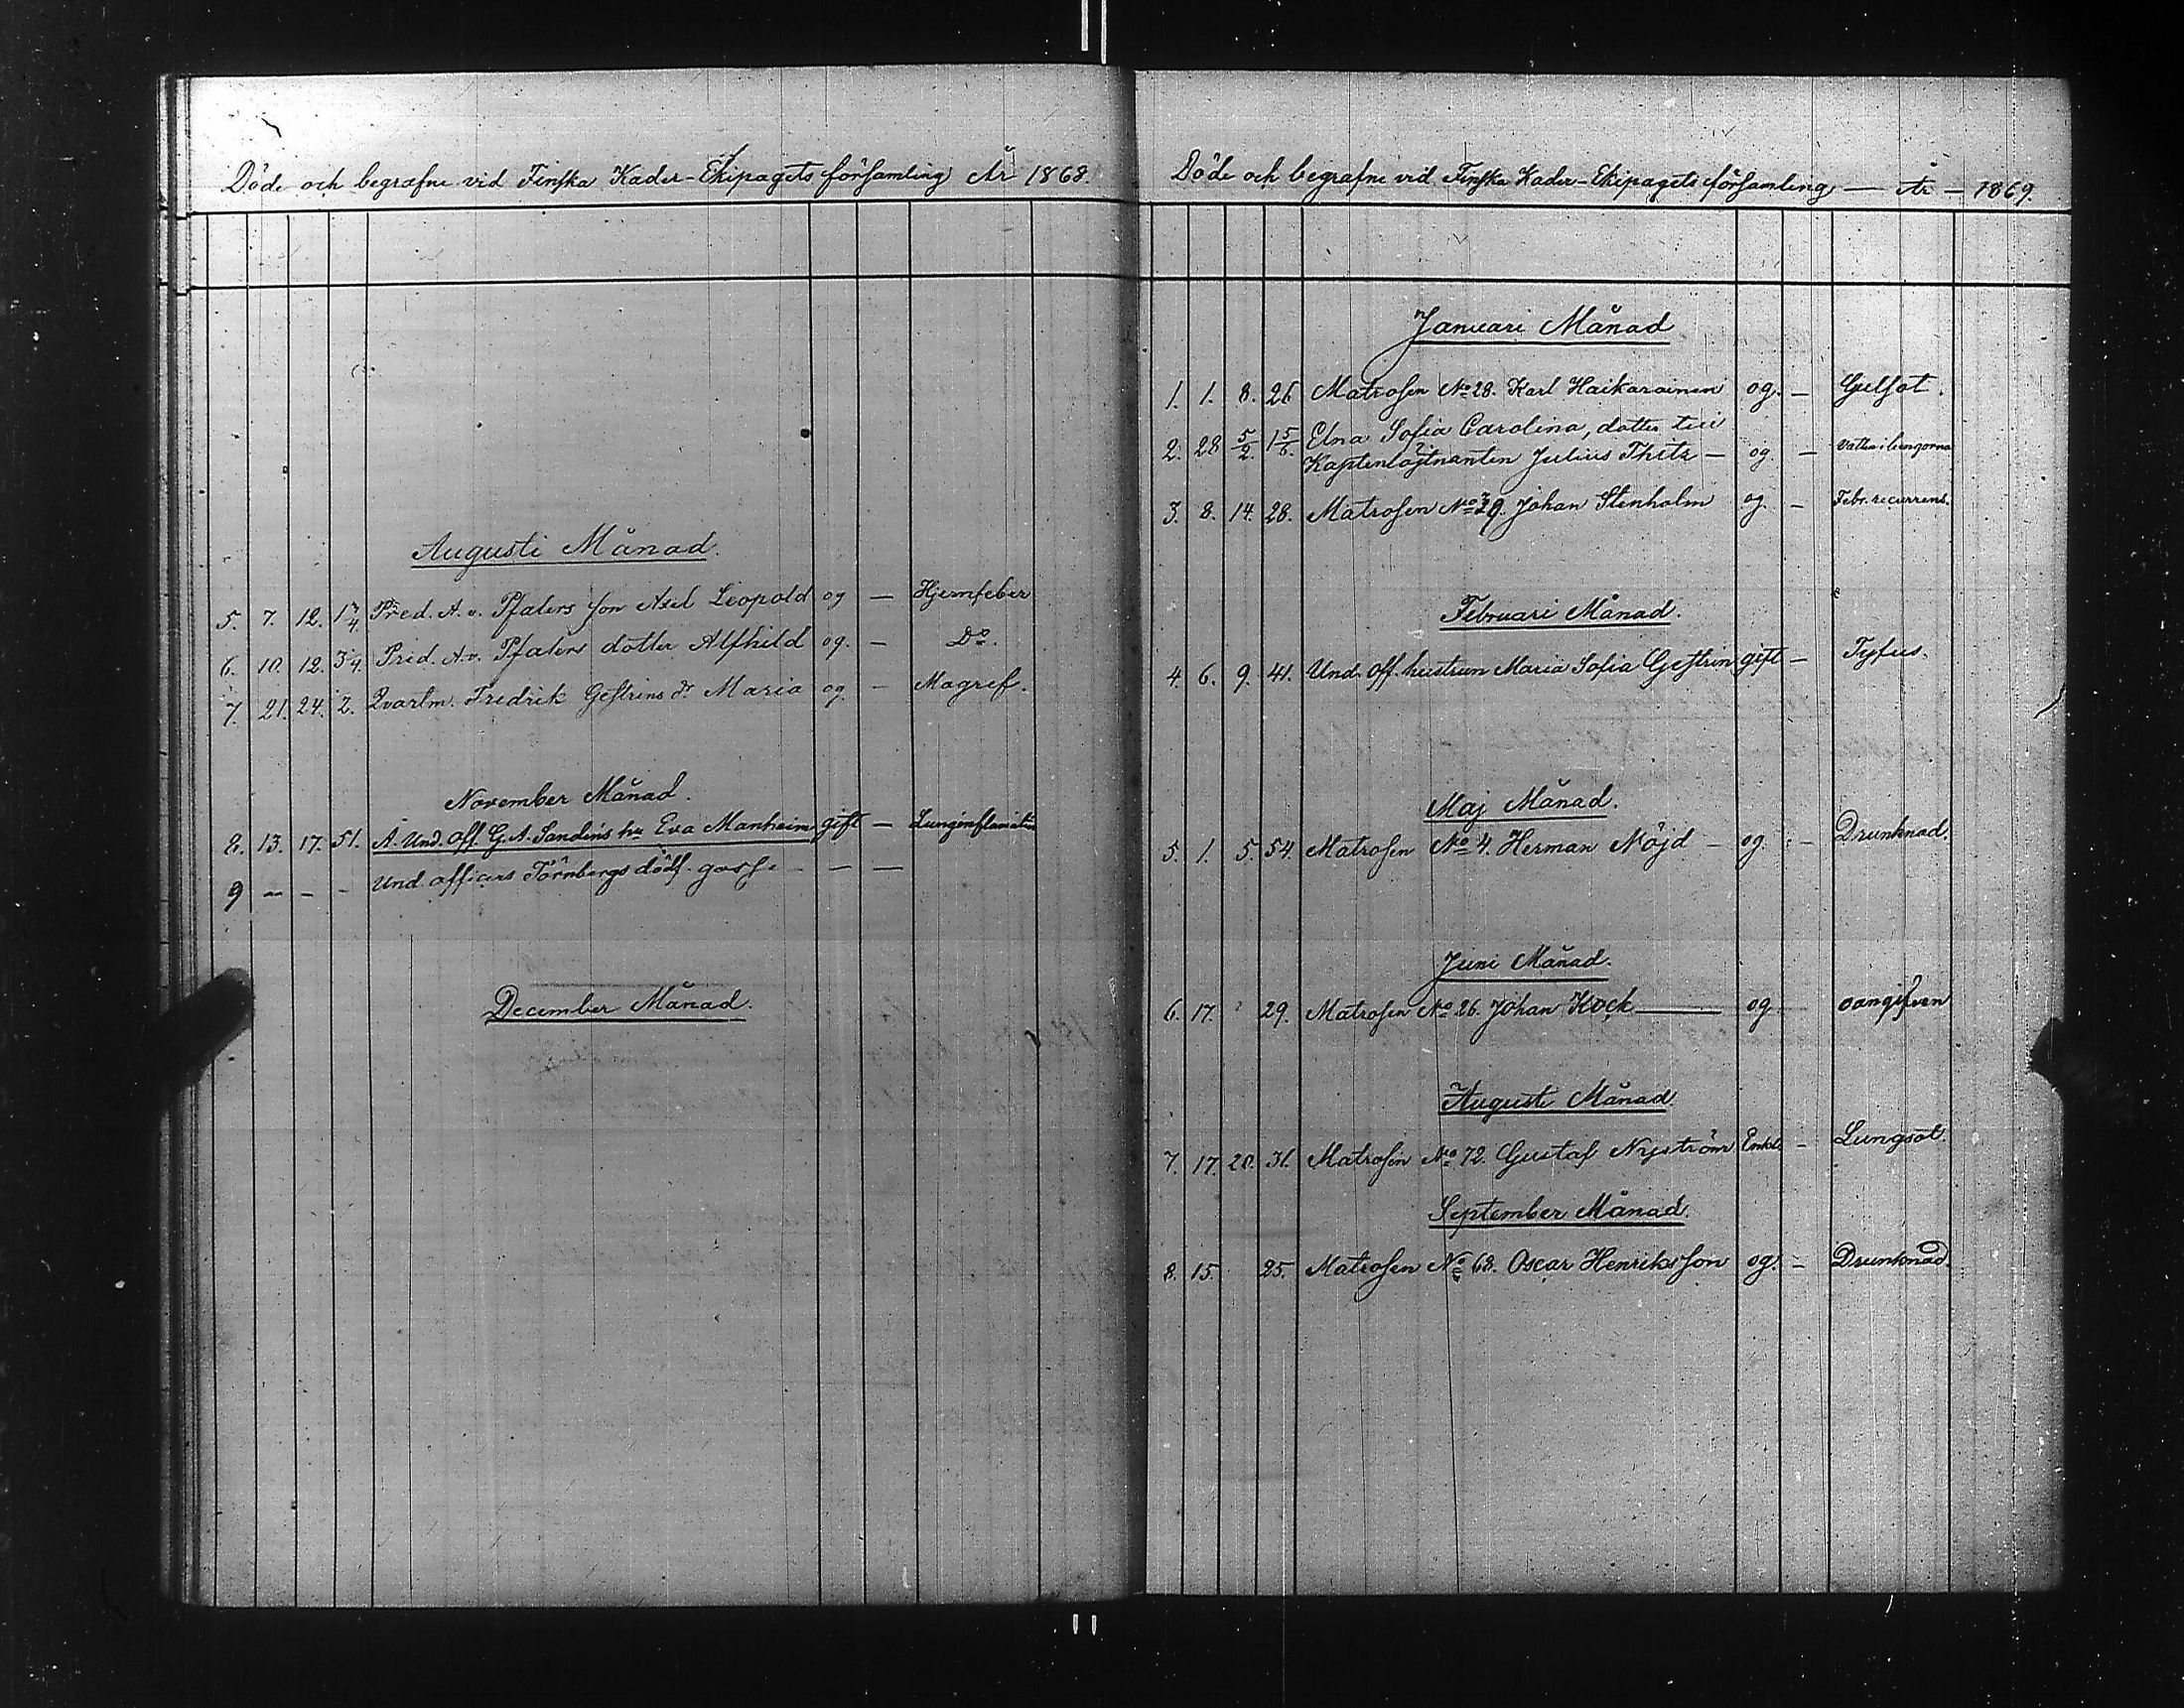 Döde och begrafne vid Finska Kader-Ekipagets församling År 1868.
Augusti Månad.
5. 7. 12. 1 3/4. Pred. A. v. Pfalers son Axel Leopold og — Hjernfeber
6. 10. 12. 3/4. Pred. A. v. Pfalers dotter Alfhild og. — Do.
7. 21. 24. 2. Qvartm. Fredrik Gestrins dr Maria og. — Magref.
November Månad.
8. 13. 17. 51. A. Und. Off. G. A. Sandins hu Eva Manheim gift — Lunginflamation
9 — — — Und. officers Törnbergs dödf. gosse — — —
December Månad.
Döde och begrafne vid Finska Kader-Ekipagets församling — År — 1869.
Januari Månad
1. 1. 8. 26 Matrosen No 28. Karl Haikarainen og. — Gulsot.
2. 28 5/2. 1 5/6. Elna Sofia Carolina, dotter till
Kaptenlöjtnanten Julius Thitz — og — Vatten i lungorna
3. 8. 14. 28. Matrosen No 29. Johan Stenholm og — Febr. recurrens.
Februari Månad.
4. 6. 9. 41. Und. Off. hustrun Maria Sofia Gestrin gift — Tyfus.
Maj Månad.
5. 1. 5. 54. Matrosen No 4. Herman Nöjd — og. — Drunknad.
Juni Månad.
6. 17. ? 29. Matrosen No 26. Johan Kock — og oangifven
Augusti Månad.
7. 17. 20. 31. Matrosen No 72. Gustaf Nyström Enkl. — Lungsot.
September Månad.
8. 15. 25. Matrosen No 68. Oscar Henriksson og. — Drunknad.